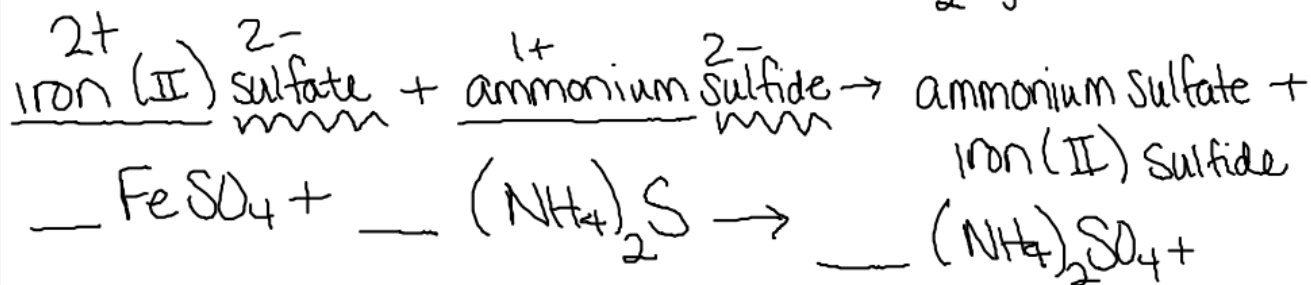 2+ 2- 1+ 2-
iron (II) sulfate + ammonium sulfide → ammonium sulfate +
iron (II) sulfide
__ FeSO₄ + __ (NH₄)₂S → __ (NH₄)₂SO₄ +